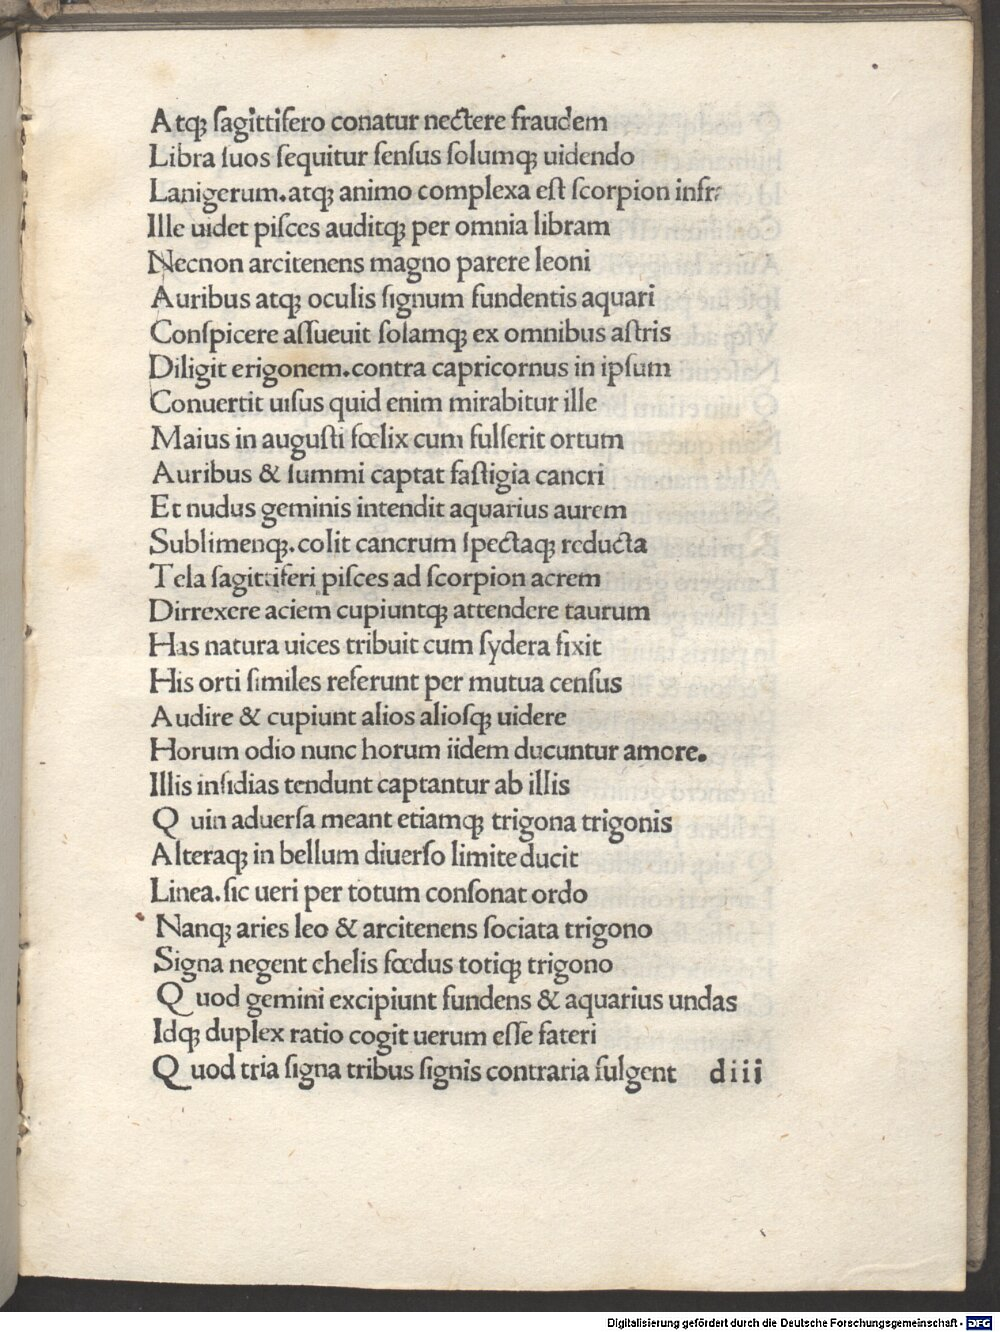 Atqꝫ ſagittifero conatur nectere fraudem
Libra ſuos ſequitur ſenſus ſolumqꝫ uidendo
Lanigerum.atqꝫ animo complexa eſt ſcorpion infra
Ille uidet piſces auditqꝫ per omnia libram
Necnon arcitenens magno parere leoni
Auribus atqꝫ oculis ſignum fundentis aquari
Conſpicere aſſueuit ſolamqꝫ ex omnibus aſtris
Diligit erigonem.contra capricornus in ipſum
Conuertit uiſus quid enim mirabitur ille
Maius in auguſti fœlix cum fulſerit ortum
Auribus & ſummi captat faſtigia cancri
Et nudus geminis intendit aquarius aurem
Sublimenqꝫ.colit cancrum ſpectaqꝫ reducta
Tela ſagittiferi piſces ad ſcorpion acrem
Dirrexere aciem cupiuntqꝫ attendere taurum
Has natura uices tribuit cum ſydera fixit
His orti ſimiles referunt per mutua cenſus
Audire & cupiunt alios alioſqꝫ uidere
Horum odio nunc horum iidem ducuntur amore.
Illis inſidias tendunt captantur ab illis
Q uin aduerſa meant etiamqꝫ trigona trigonis
Alteraqꝫ in bellum diuerſo limite ducit
Linea.ſic ueri per totum conſonat ordo
Nanqꝫ aries leo & arcitenens ſociata trigono
Signa negent chelis fœdus totiqꝫ trigono
Q uod gemini excipiunt fundens & aquarius undas
Idqꝫ duplex ratio cogit uerum eſſe fateri
Q uod tria ſigna tribus ſignis contraria fulgent diii
Digitalisierung gefördert durch die Deutsche Forschungsgemeinschaft - DFG